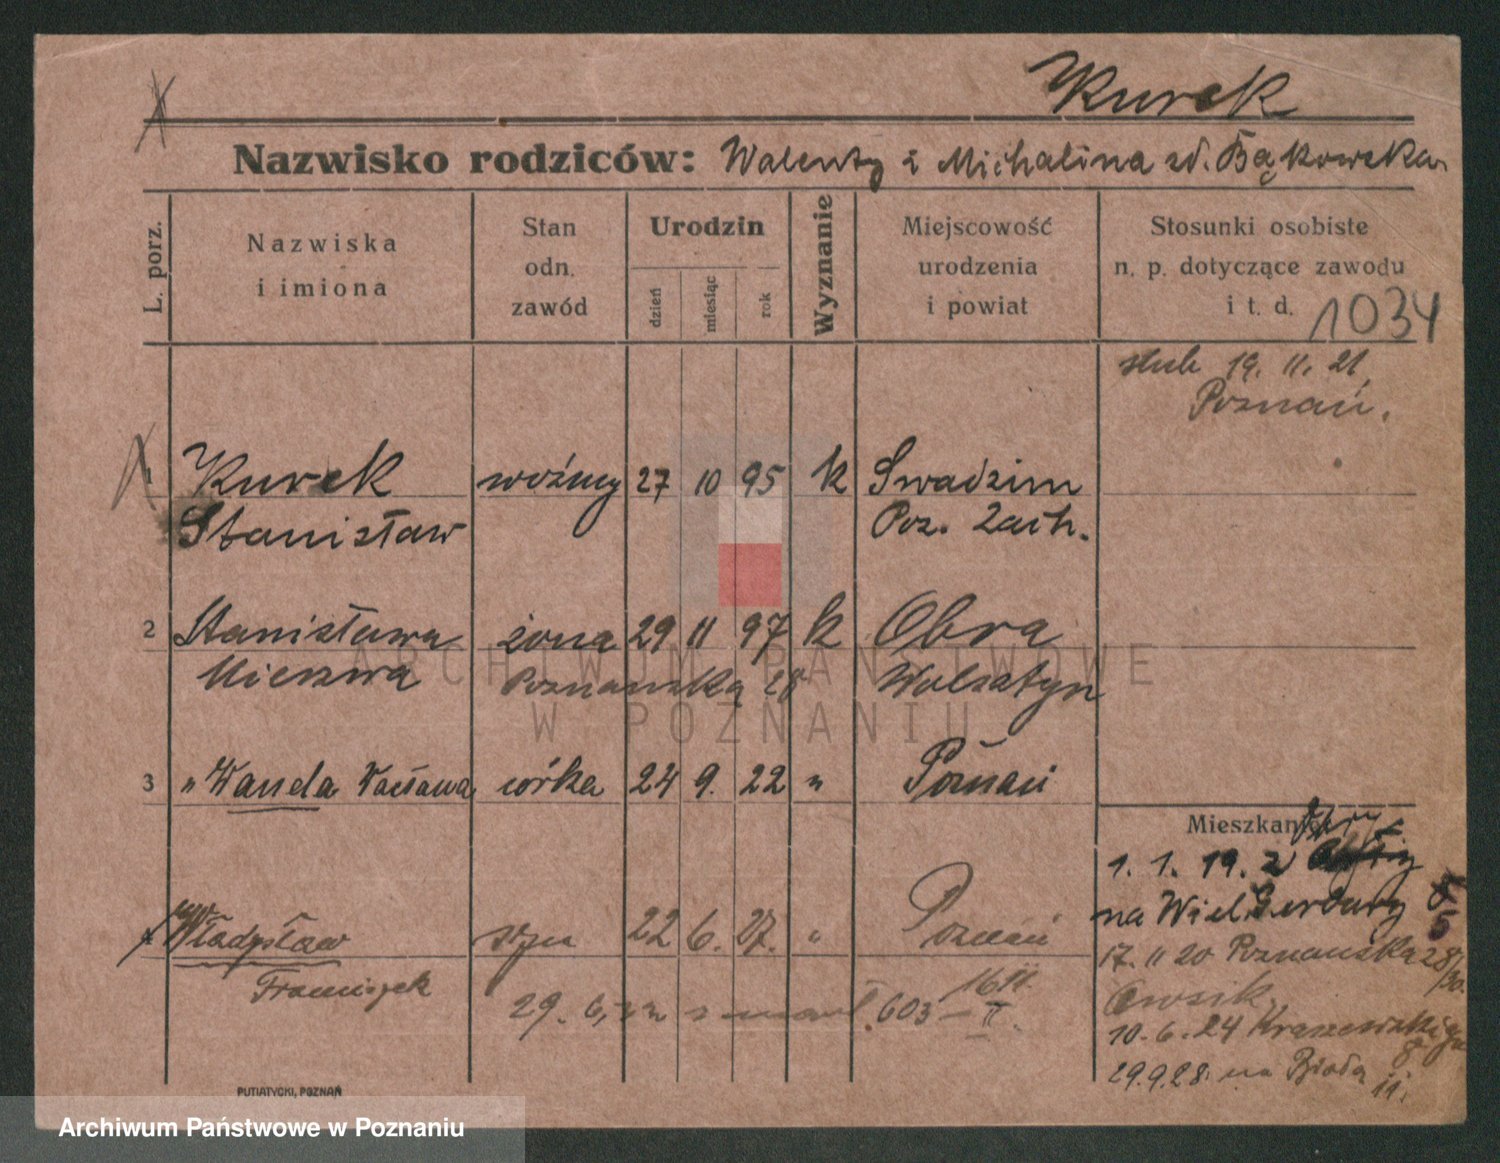 Kurek
Nazwisko rodziców: Walenty i Michalina zd. Bąkowska
L. porz.
Nazwiska i imiona
Stan odn. zawód
Urodzin
dzień miesiąc rok
Wyznanie
Miejscowość urodzenia i powiat
Stosunki osobiste n. p. dotyczące zawodu i t. d.
1034
ślub 19. 11. 21
Poznań.
1 Kurek woźny 27 10 95 k Swadzim
Stanisław Poz. Zach.
2 Stanisława żona 29 11 97 k Obra
Mieszwa Poznańska 28 Wolsztyn
3 " Wanda Wacława córka 24 9. 22 " Poznań
Mieszkanie
1. 1. 19. z
na Wiel. Gerbary
5
4 Władysław syn 22 6. 27. " Poznań
Franciszek
17. 11 20 Poznańska 28/30.
Owsik.
29. 6. zm 603 16 II.
10. 6. 24 Kraszewskiego 8
29. 9. 28. na Biała 11.
PUTIATYCKI, POZNAŃ
ARCHIWUM PAŃSTWOWE
W POZNANIU
Archiwum Państwowe w Poznaniu